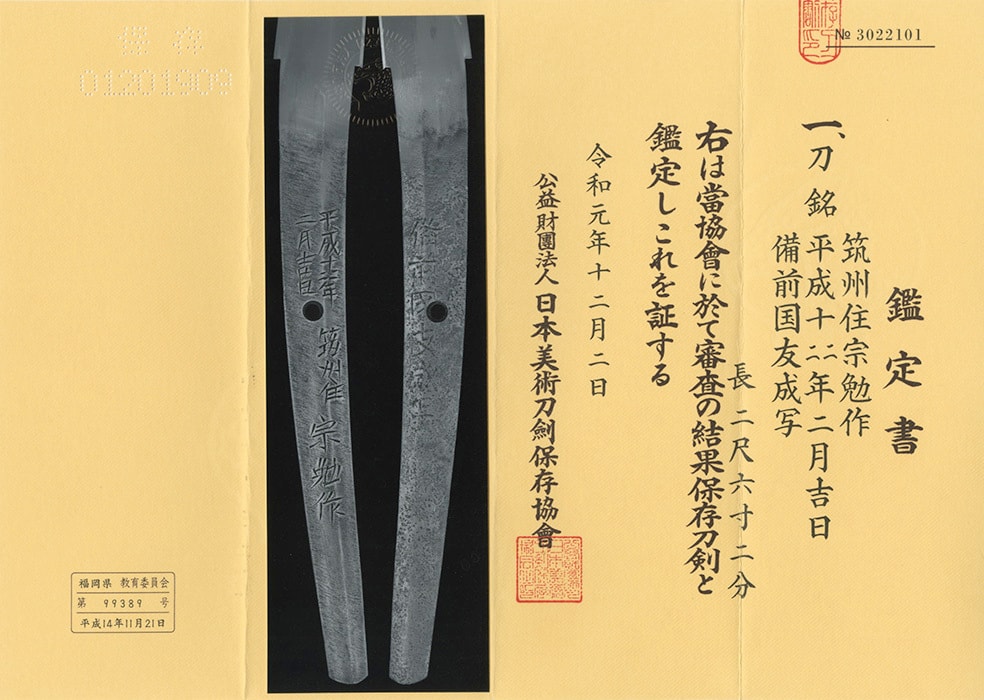 № 3022101
鑑定書
一、刀 銘
筑州住宗勉作
平成十二二年二月吉日
備前国友成写
長 二尺六寸二分
右は當協會に於て審査の結果保存刀剣と
鑑定しこれを証する
令和元年十二月二日
公益財團法人 日本美術刀劍保存協會
筑州住 宗勉作
平成十二二年
二月吉日
保存
01201909
福岡県 教育委員会
第 99389 号
平成14年11月21日